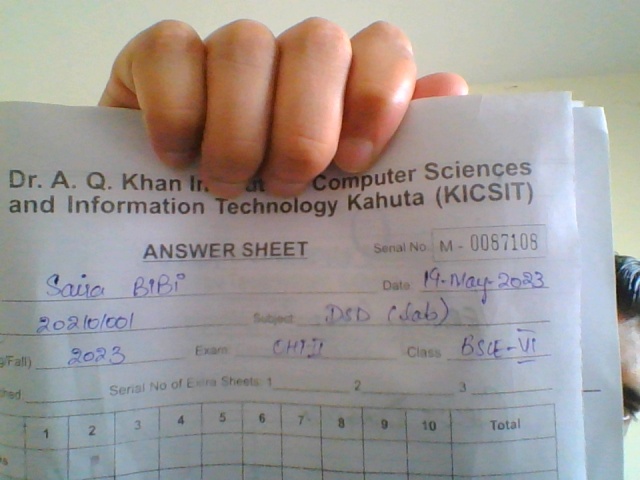 Dr. A. Q. Khan In ut Computer Sciences
and Information Technology Kahuta (KICSIT)
ANSWER SHEET Serial No. M - 0087108
Saira BIBI Date 19-May-2023
202101001 Subject: DSD (Lab)
g/Fall) 2023 Exam: Class BSCE-VI
Serial No of Extra Sheets: 1 2 3
1 2 3 4 5 6 7 8 9 10 Total